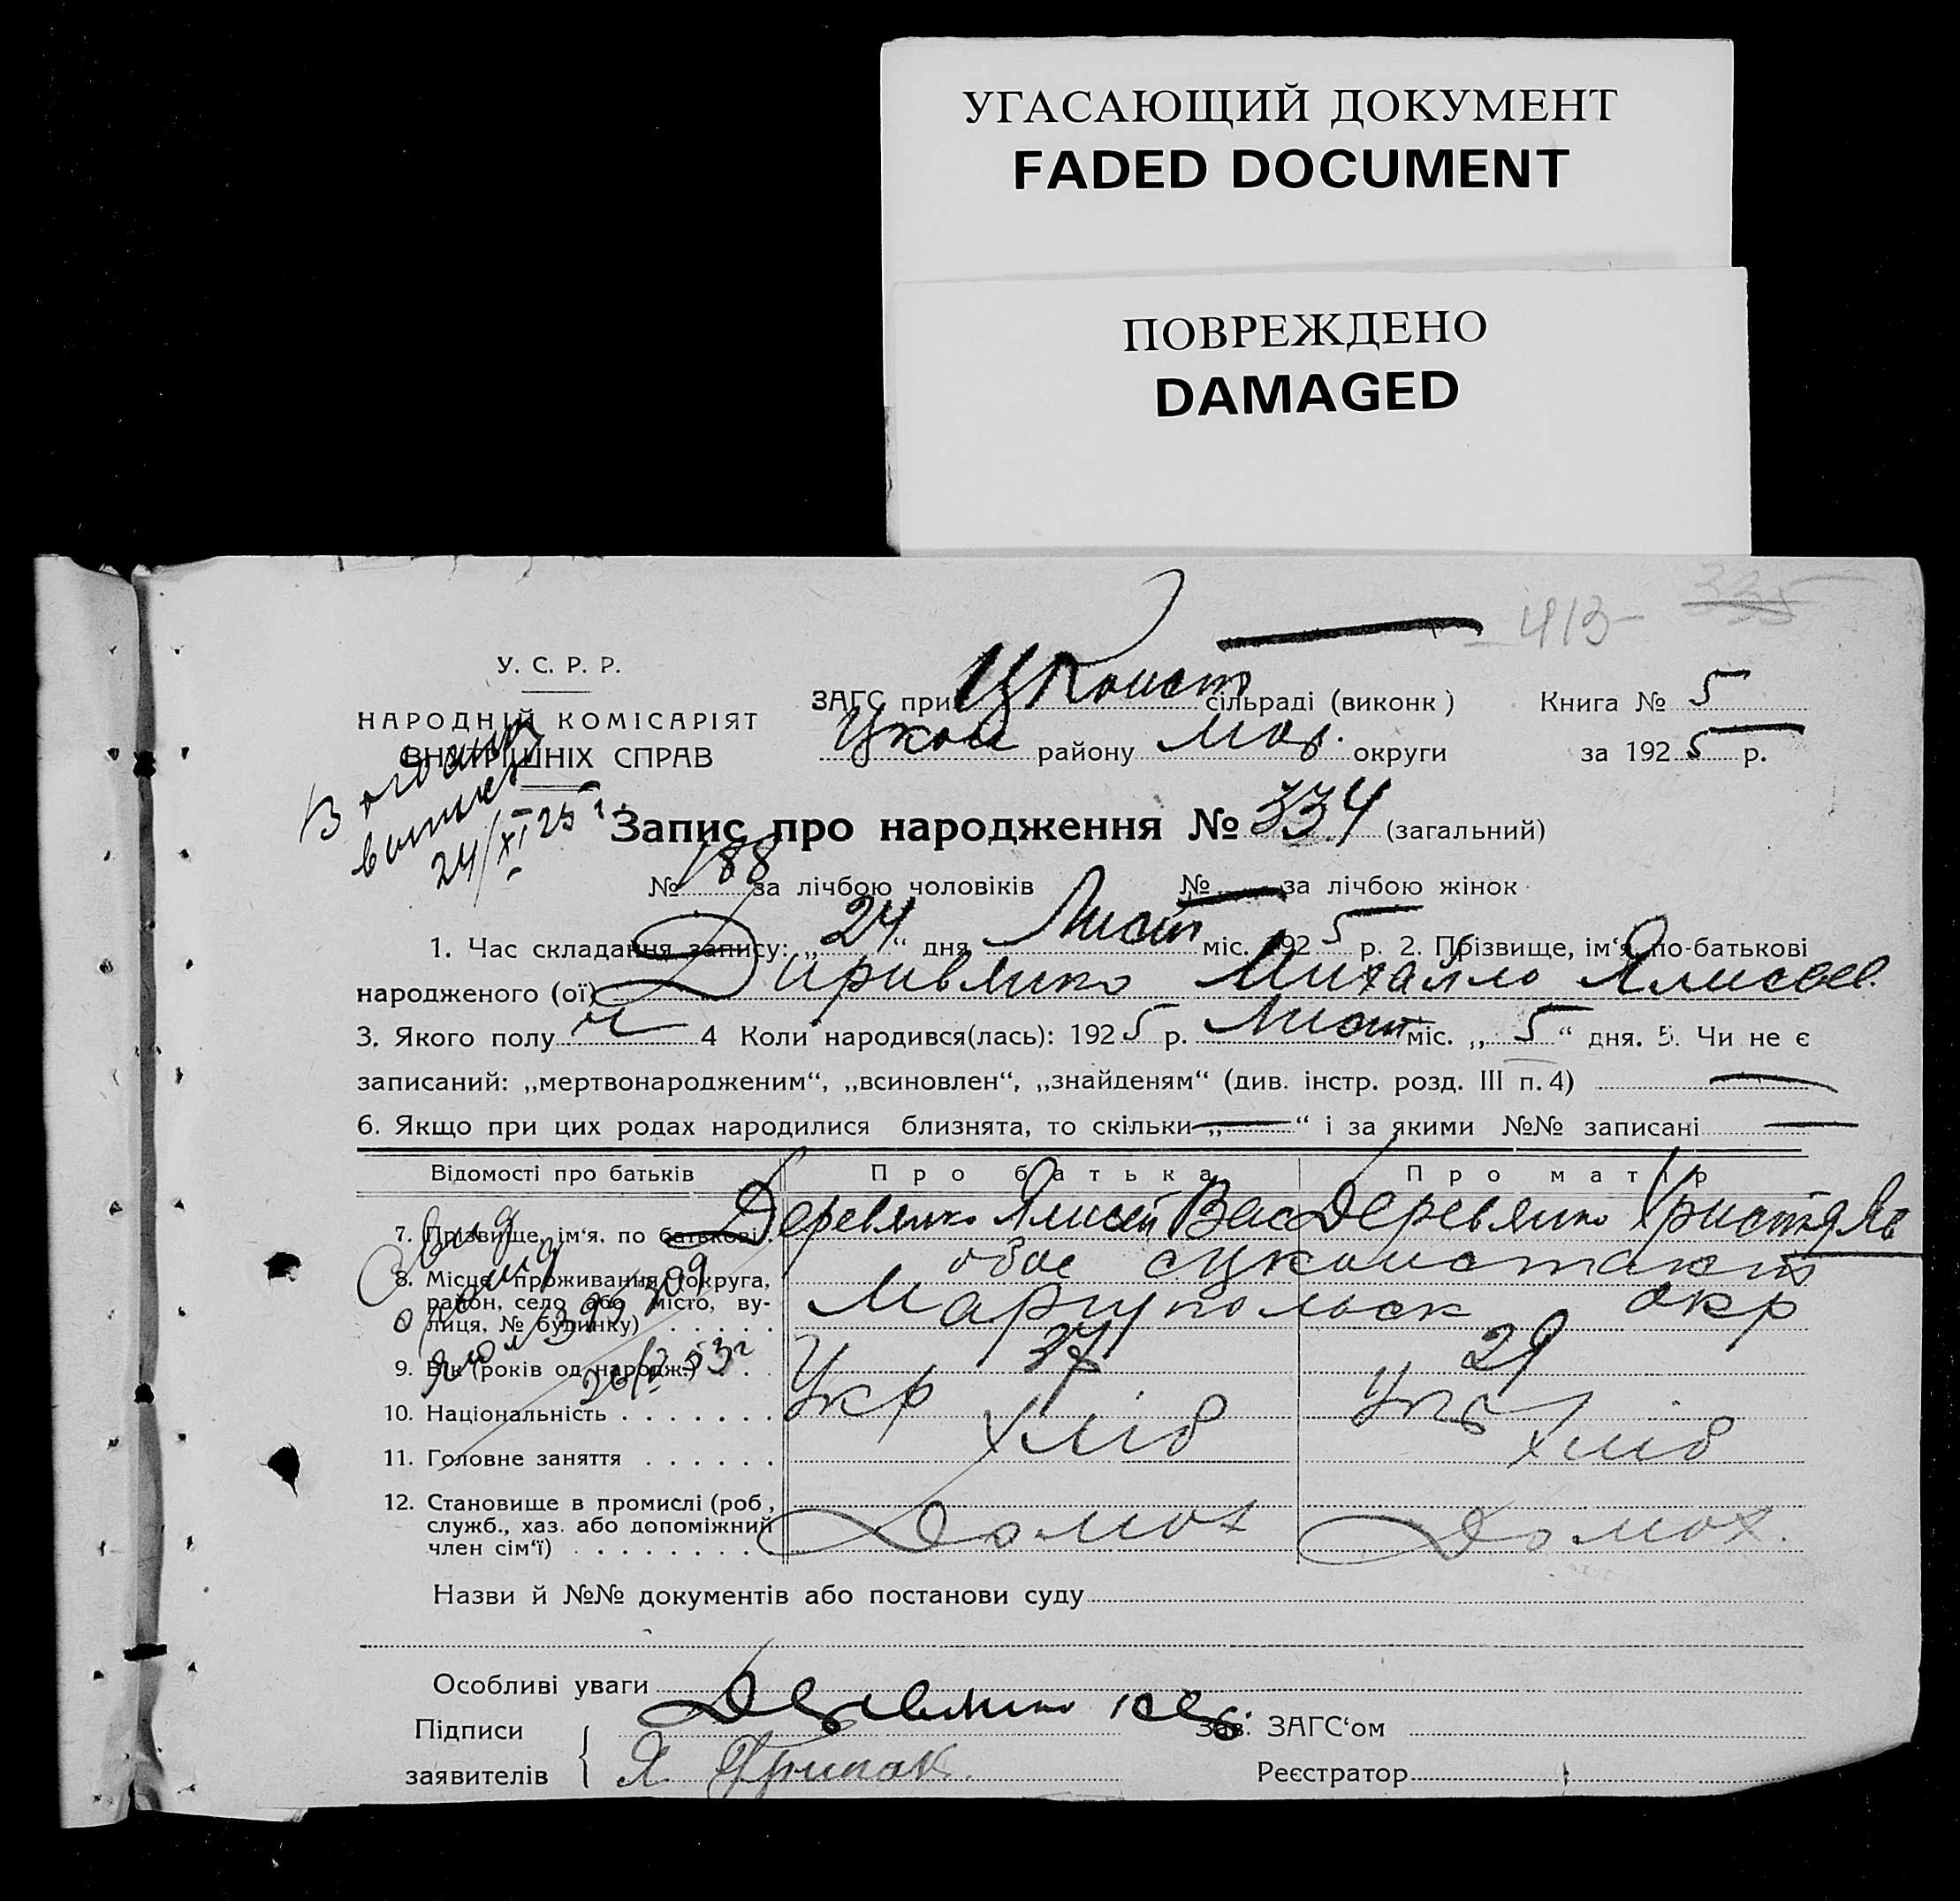 УГАСАЮЩИЙ ДОКУМЕНТ
FADED DOCUMENT
ПОВРЕЖДЕНО
DAMAGED
413 335
У. С. Р. Р.
НАРОДНІЙ КОМІСАРІЯТ
ВНУТРІШНІХ СПРАВ
ЗАГС при Цконст сільраді (виконк)
Книга № 5
району Мар. округи
за 1925 р.
24/XI 25 г
Запис про народження № 334 (загальний)
№ 188 за лічбою чоловіків № за лічбою жінок
1. Час складання запису: „24“ дня Лист міс. 1925 р. 2. Прізвище, ім‘я, по-батькові
народженого (ої) Диривянко Михайло Ялисее.
3. Якого полу ч 4 Коли народився(лась): 1925 р. Лист міс. „5“ дня. 5. Чи не є
записаний: „мертвонародженим“, „всиновлен“, „знайденям“ (див. інстр. розд. III п. 4)
6. Якщо при цих родах народилися близнята, то скільки „ “ і за якими №№ записані
Відомості про батьків Про батька Про матір
7. Прізвище, ім‘я, по батькові Деревянко Ялисей Вас Деревянко Христя Яв
8. Місце проживання (округа, район, село або місто, вулиця, № будинку) обоє
Мариупольск окр
9. Вік (років од народж.) 37 29
26/2 53 г
10. Національність Укр Укр
11. Головне заняття Хліб Хліб
12. Становище в промислі (роб, служб., хаз. або допоміжний член сім‘ї) Домох Домох.
Назви й №№ документів або постанови суду
Особливі уваги
Підписи Деревянко Зав. ЗАГС‘ом
заявителів Реєстратор